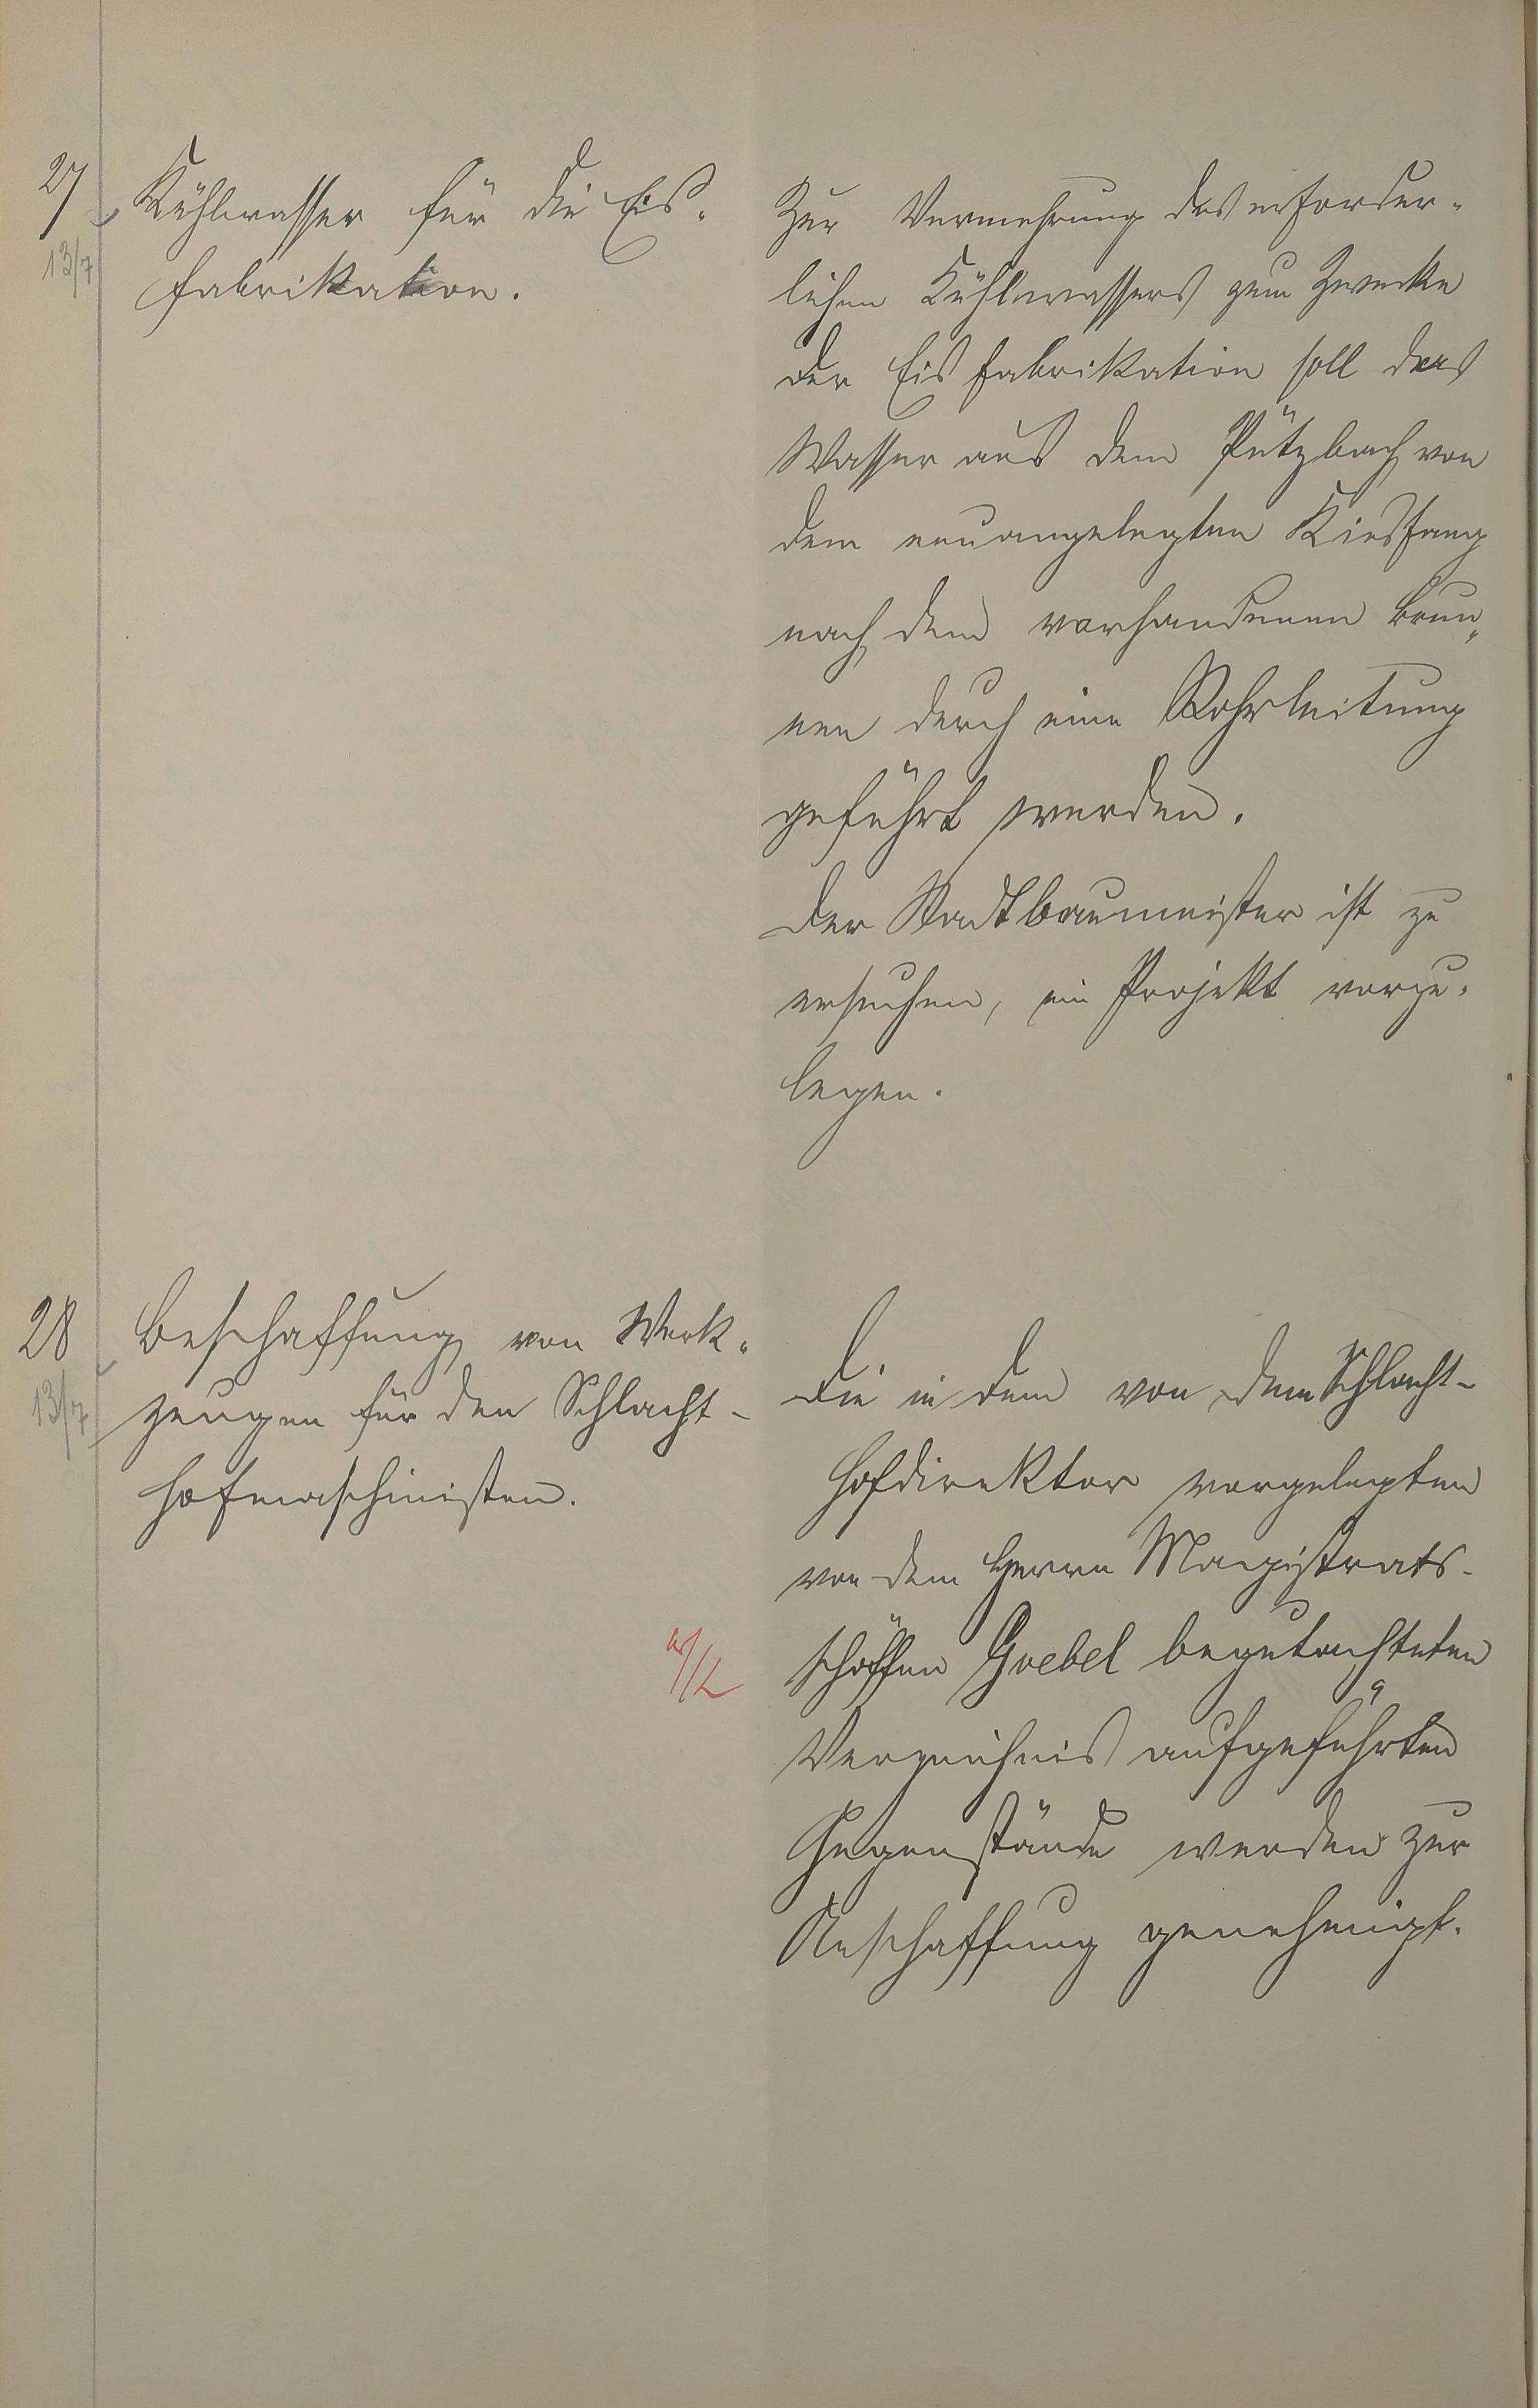 27
13/7
Kühlwasser für die Eis-
fabrikation.
Zur Vermehrung des erforder-
lichen Kühlwassers zum Zwecke
der Eisfabrikation soll das
Wasser aus dem Pützbach von
dem neuangelegten Kiesfang
nach dem vorhandenen Brun-
nen durch eine Rohrleitung
geführt werden.
Der Stadtbaumeister ist zu
ersuchen, ein Projekt vorzu-
legen.
28
13/7
Beschaffung von Werk-
zeugen für den Schlacht-
hofmaschinisten.
Die in dem von dem Schlacht-
hofdirektor vorgelegten
von dem Herrn Magistrats-
schöffen Goebel begutachteten
Verzeichnis aufgeführten
Gegenstände werden zur
Anschaffung genehmigt.